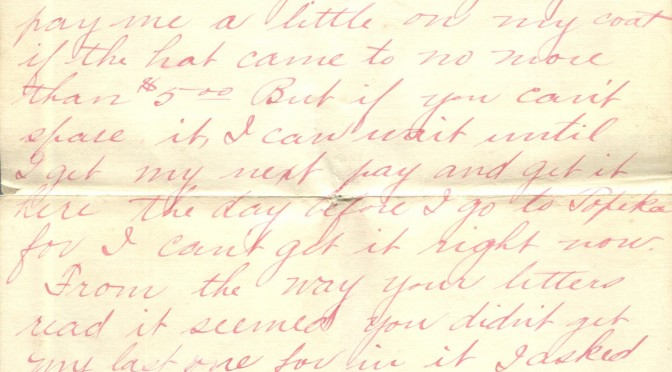 pay me a little on my coat
if the hat came to no more
than $5 00 But if you can't
spare it, I can wait until
I get my next pay and get it
here the day before I go to Topeka
for I can't get it right now.
From the way your letters
read it seemed you didn't get
my last one for in it I asked